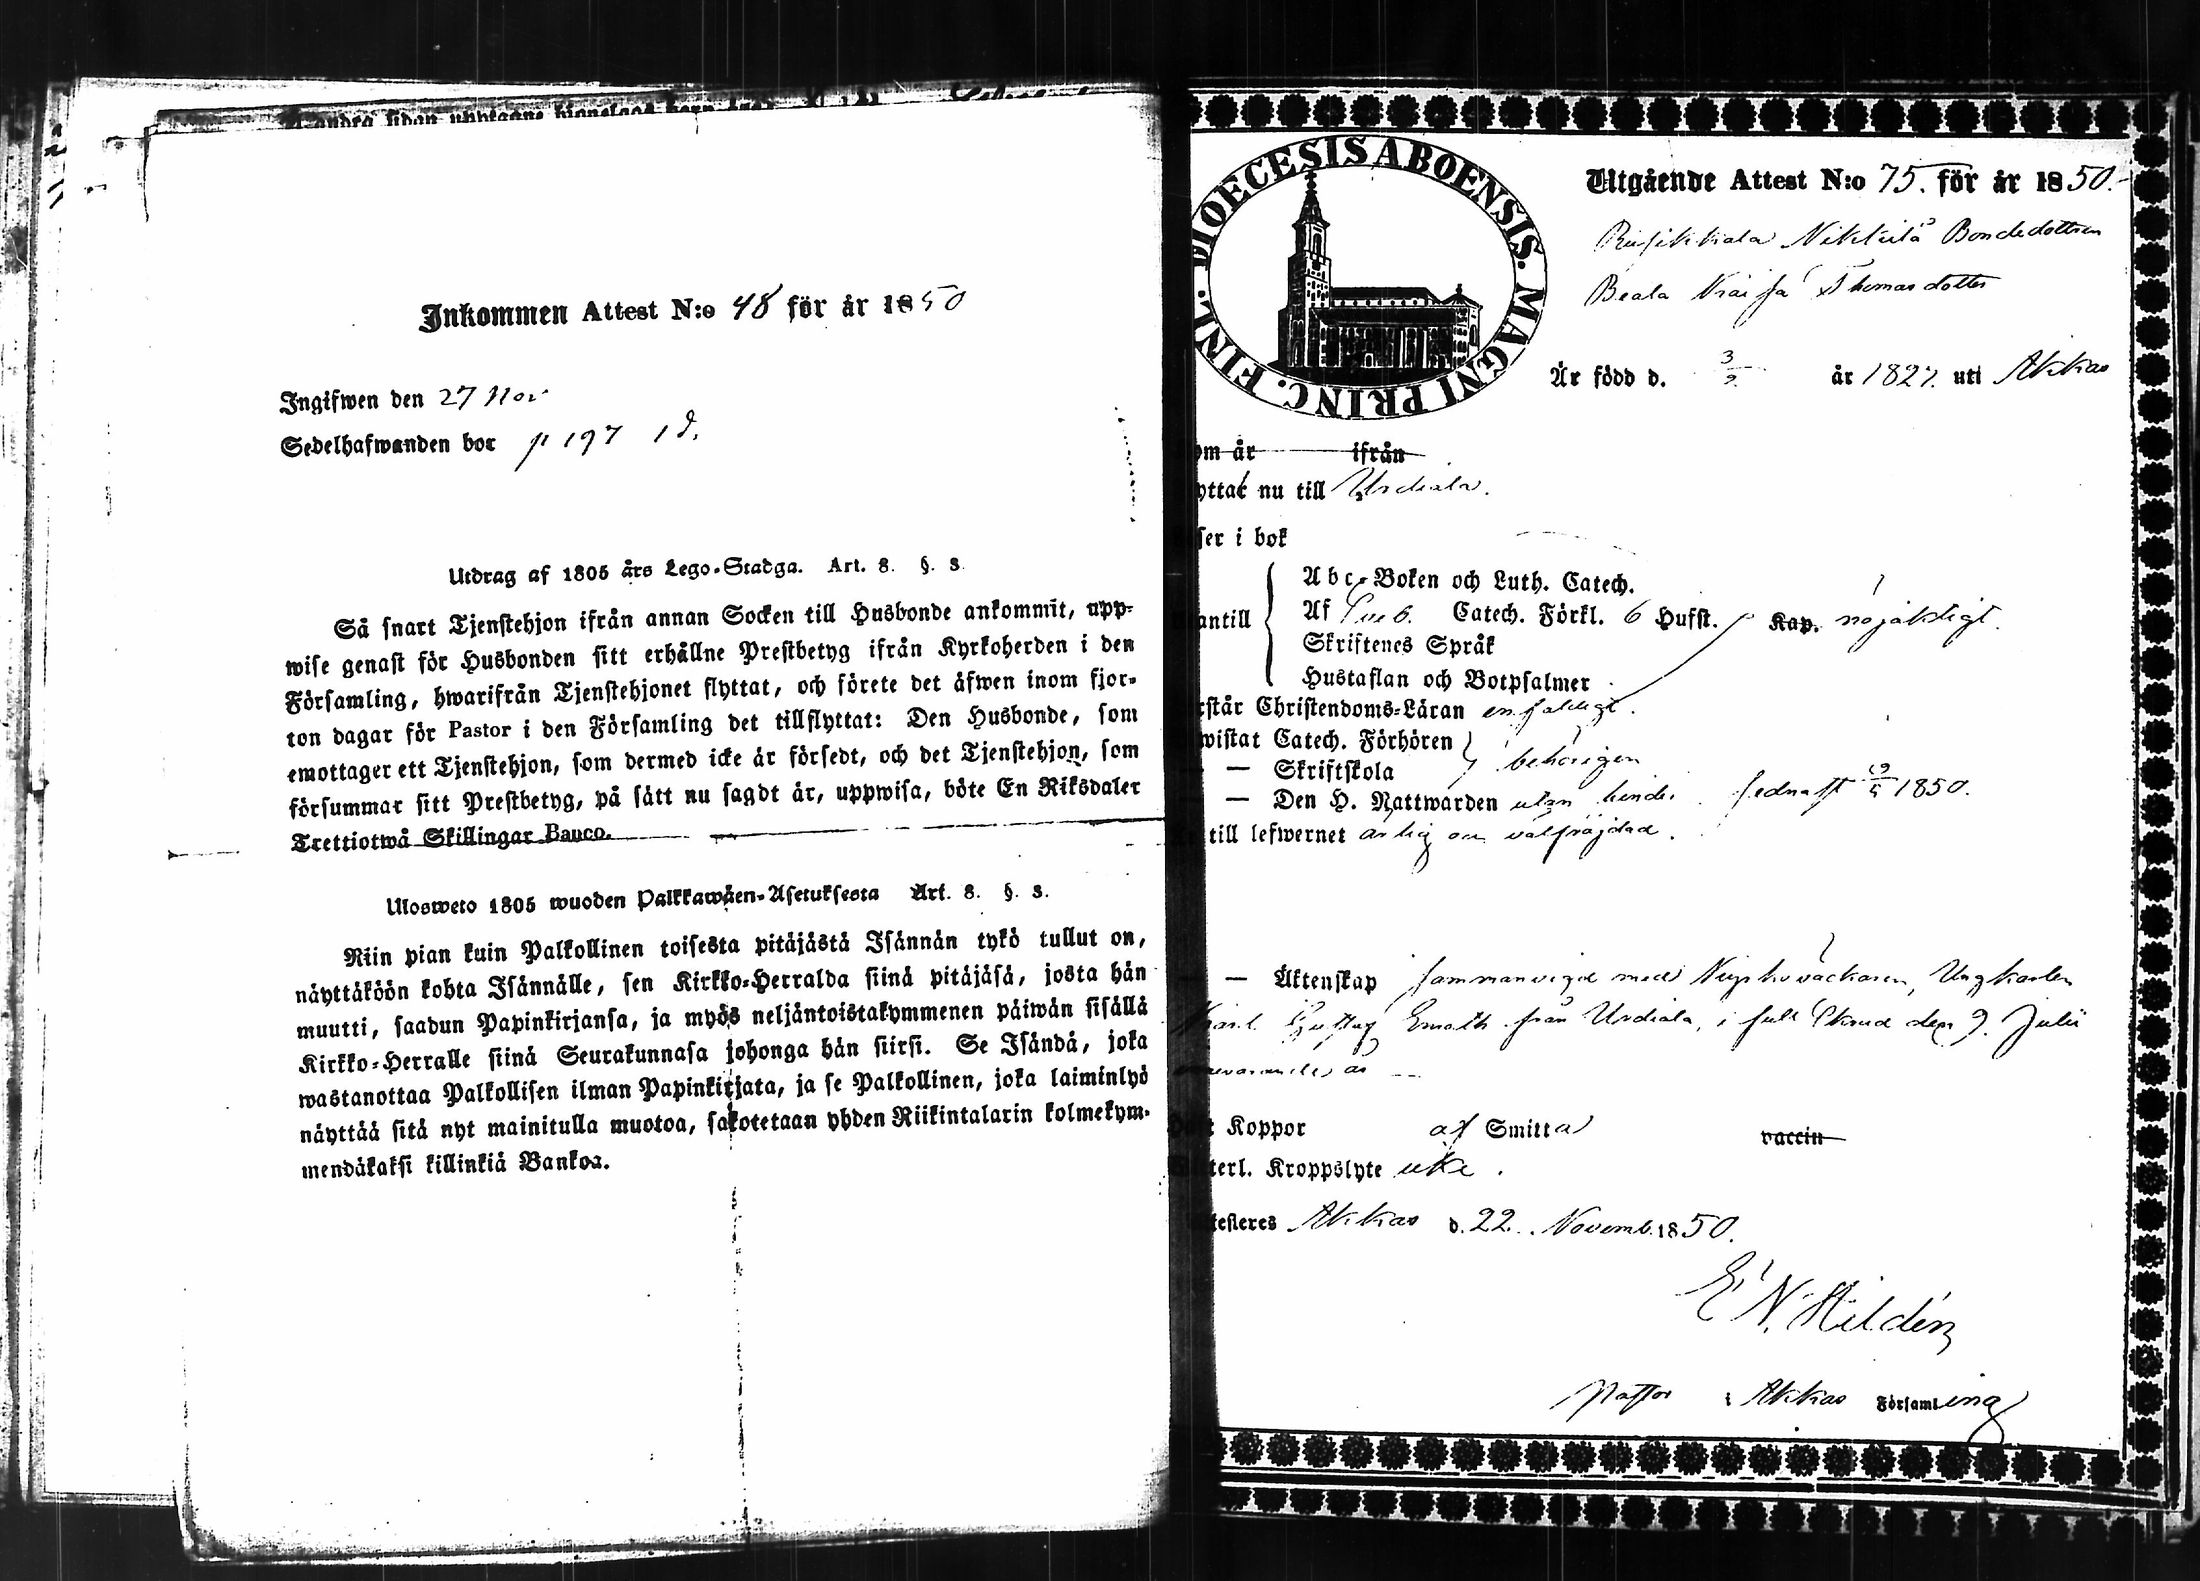 Inkommen Attest N:o 48 för år 1850
Ingifwen den 27 Nov
Sedelhafwanden bor p 197 1 d.
Utdrag af 1805 års Lego-Stadga. Art. 8. §. 3.
Så snart Tjenstehjon ifrån annan Socken till Husbonde ankommit, upp-
wise genast för Husbonden sitt erhållne Prestbetyg ifrån Kyrkoherden i den
Församling, hwarifrån Tjenstehjonet flyttat, och förete det äfwen inom fjor-
ton dagar för Pastor i den Församling det tillflyttat: Den Husbonde, som
emottager ett Tjenstehjon, som dermed icke är försedt, och det Tjenstehjon, som
försummar sitt Prestbetyg, på sätt nu sagdt är, uppwisa, böte En Riksdaler
Trettiotwå Skillingar Banco.
Ulosweto 1805 wuoden Palkkawäen-Asetuksesta Art. 8. §. 3.
Niin pian kuin Palkollinen toisesta pitäjästä Isännän tykö tullut on,
näyttäköön kohta Isännälle, sen Kirkko-Herralda siinä pitäjäsä, josta hän
muutti, saadun Papinkirjansa, ja myös neljäntoistakymmenen päiwän sisällä
Kirkko-Herralle siinä Seurakunnasa johonga hän siirsi. Se Isändä, joka
wastanottaa Palkollisen ilman Papinkirjata, ja se Palkollinen, joka laiminlyö
näyttää sitä nyt mainitulla muotoa, sakotetaan yhden Riikintalarin kolmekym-
mendäkaksi killinkiä Bankoa.
DIOECESIS ABOENSIS. MAGNI PRINC. FINL.
Utgående Attest N:o 75. för år 1850.
Nikkilä Bondedottren
Beata Thomasdotter
Är född d. 3/9. år 1827. uti Akkas
om år ifrån
yttat nu till Urdiala.
ser i bok
Abc-Boken och Luth. Catech.
antill Af Catech. Förkl. 6 Hufst. Kap. nöjaktigt.
Skriftenes Språk
Hustaflan och Botpsalmer
rstår Christendoms-Läran enfaldigt.
wistat Catech. Förhören
— Skriftskola behörigen
— Den H. Nattwarden utan hinder sednast 19/5 1850.
till lefwernet ärlig och välfräjdad.
— — Äktenskap sammanvigd med Ungkarlen
Gustaf från Urdiala, i full den 9. Julii
år
Koppor af Smitta vaccin
terl. Kroppslyte icke.
testeres Akkas d. 22. Novemb. 1850.
E N. Hildén
Pastor i Akkas Församling